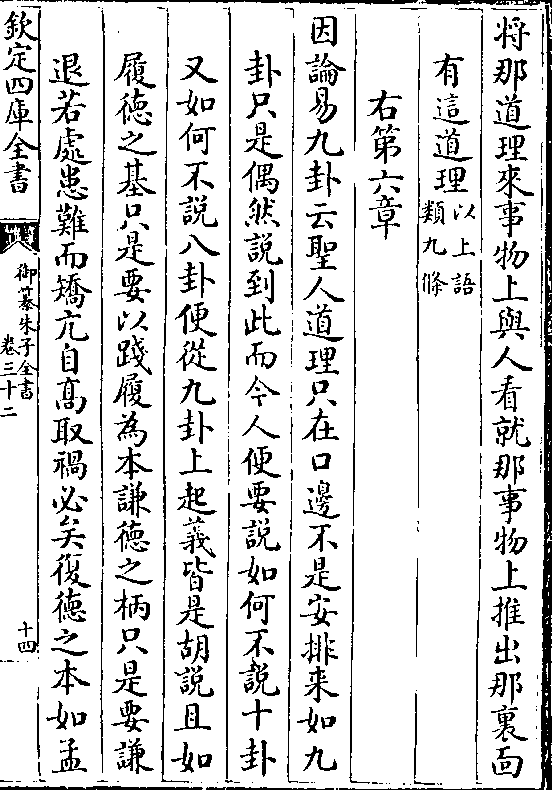 將那道理來事物上與人看就那事物上推出那裏面
有這道理以上語類九條
右第六章
因論易九卦云聖人道理只在口邊不是安排来如九
卦只是偶然說到此而今人便要說如何不說十卦
又如何不說八卦便從九卦上起義皆是胡說且如
履德之基只是要以踐履為本謙德之柄只是要謙
退若處患難而矯亢自髙取禍必矣復德之本如孟
欽定四庫全書
御纂朱子全書
卷三十二
十四